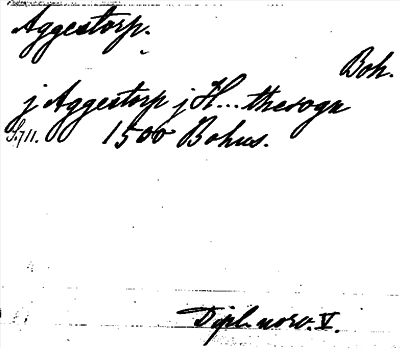 Aggestorp.
Boh.
j Aggestorp j H... thesogn
S. 711. 1500 Bohus.
Dipl. norv. V.